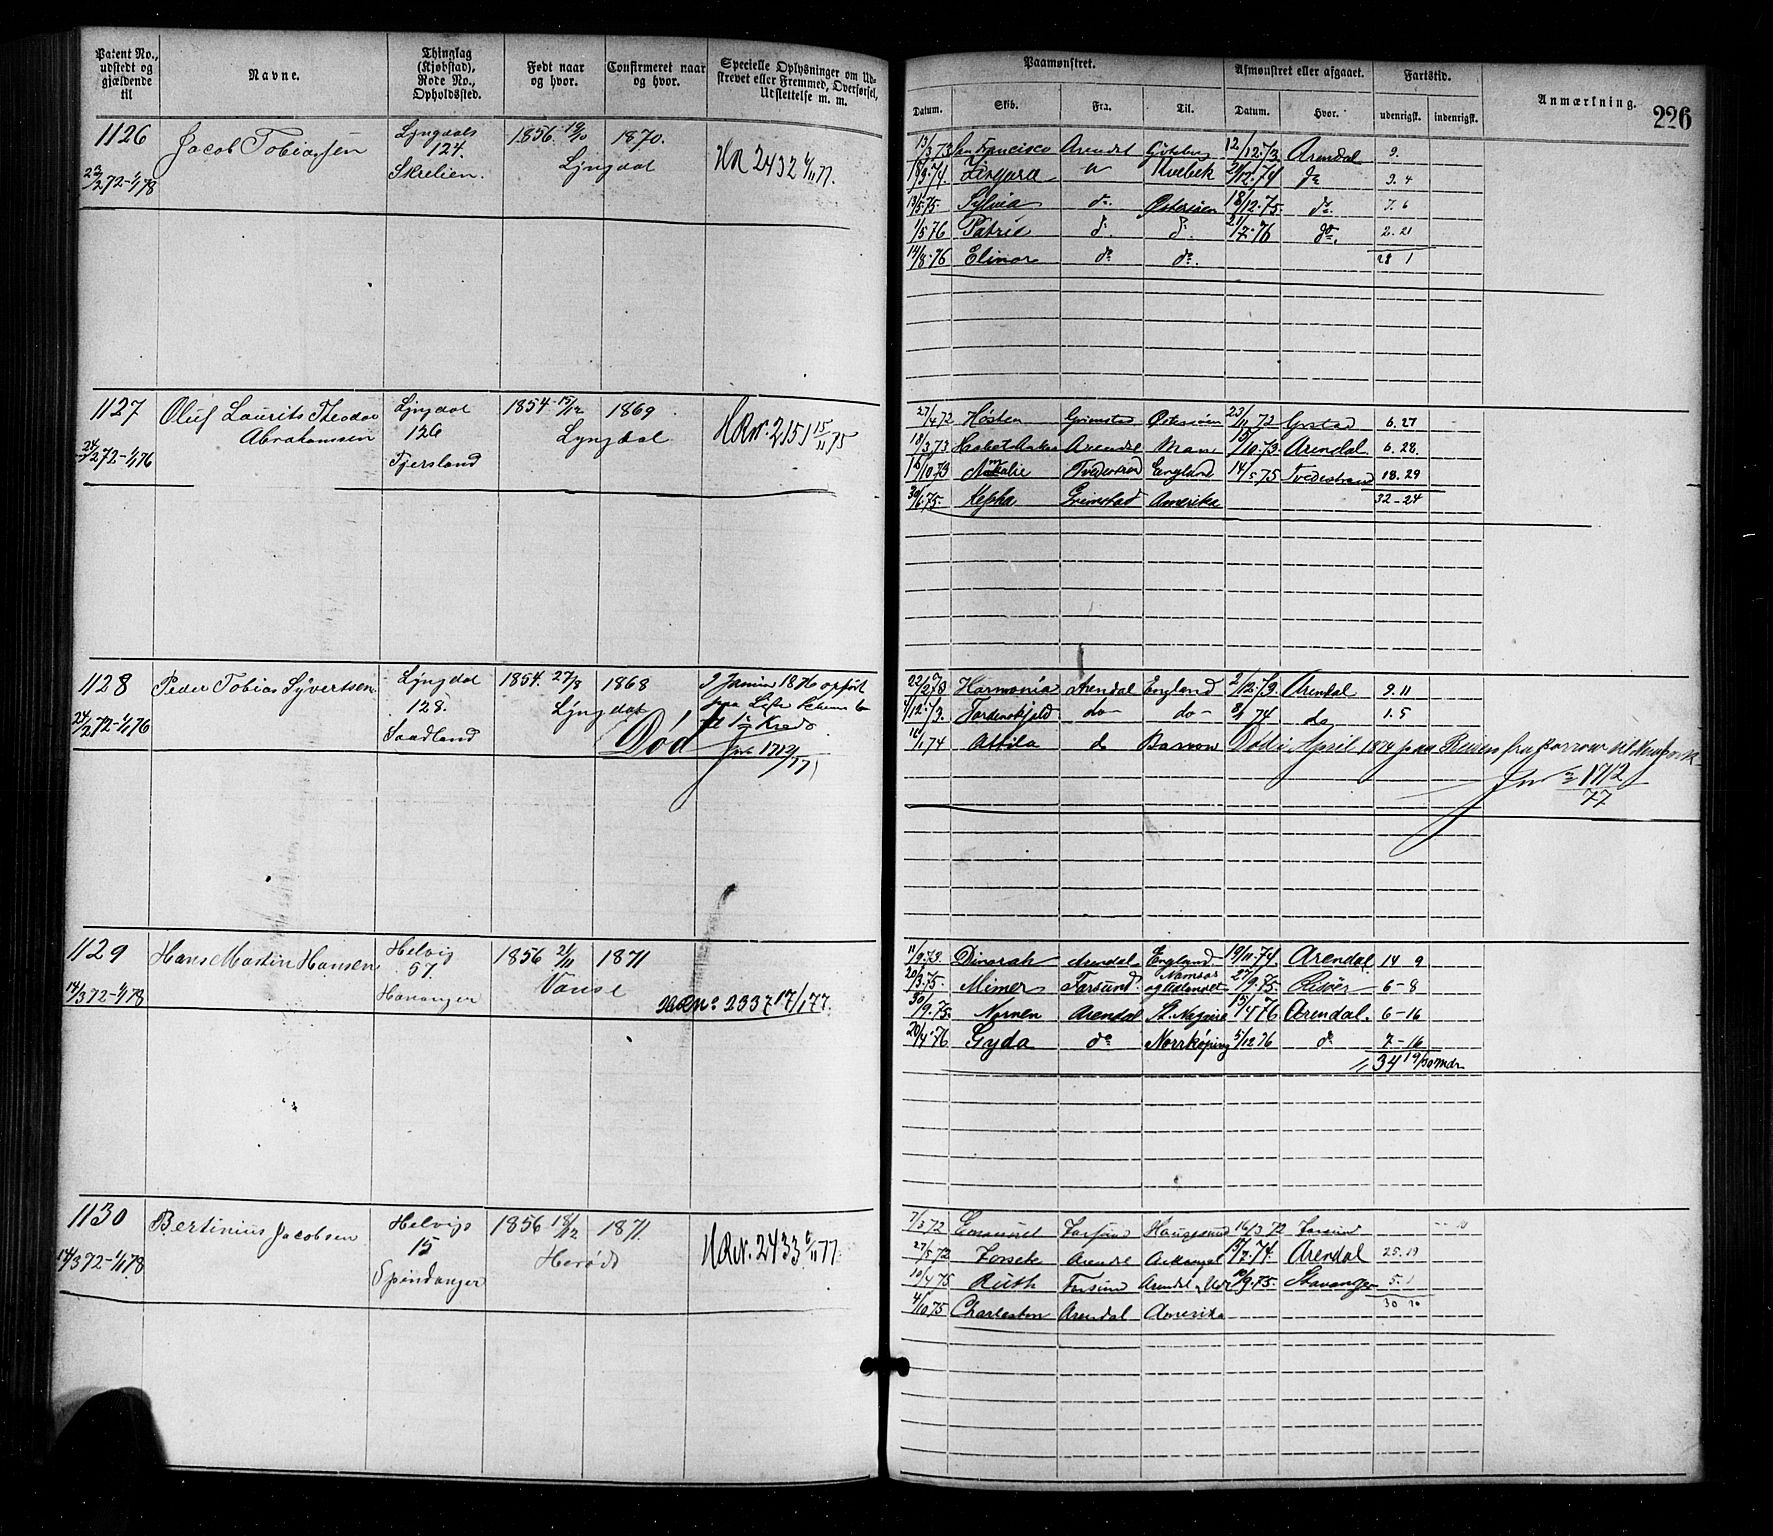 Patent No., udstedt og gjældende til
Navne.
Thinglag (Kjøbstad), Rode No., Opholdssted.
Født naar og hvor.
Confirmeret naar og hvor.
Specielle Oplysninger om Udskrevet eller Fremmed, Overførsel, Udslettelse m. m.
Paamønstret.
Afmønstret eller afgaaet.
Fartstid.
Anmærkning.
226
Datum.
Skib.
Fra.
Til.
Datum.
Hvor.
udenrigsk.
indenrigsk.
1126
Jacob Tobiassen
Lyngdals
124.
Skrelien.
1856. 19/10
1870.
Lyngdal
HR 2432 6/11 77.
23/2 72-1/1 78
13/3 73 San Francisco Arendal Gøteborg 12/12.73 Arendal 9.
18/3.74. Zingara " Kvebek 21/12.74 do 9. 4
13/5 75 Sylvia do. Østersøen 18/12.75. do. 7. 6
1/5 76 Patric d. d. 21/7.76 do. 2. 21
14/8.76 Elinor do do. 28 1
1127
Oluf Laurits Theodor
Abrahamsen
Lyngdal
126
Fjersland
1854 15/12
1869.
Lyngdal
HRN. 2151 15/11 75
24/2 72-1/1 76
27/4 72 Høsten Grimstad Østersøen 23/11 72 Grstad 6. 27
18/3.73 Arendal 10.73. Arendal. 6. 28.
10.73 England 14/5 75 Tvedestrand 18. 29
30/6 75. Kepha Grimstad Amerika 32-24
1128
Peder Tobias Syvertsen
Lyngdal
128.
Saadland
1854. 27/8
1868
Lyngdal
9 Januar 1876 opført
Død
24/2 72-1/1 76
22/2 73 Harmonia Arendal England 2/12.73. Arendal 9. 11
4/12.73. Tordenskjold do- do- 8/1 74 do 1. 5
74 Attila d Barrow Død i April 1874 paa Reisen fra Barrow til Newyork
Jno 1712/77
1129
Hans Martin Hansen
Helvig
57.
Havanger
1856 21/11
1871
Vanse
2337 17/1 77.
14/3 72-1/1 78
11/9.73 Dinorah Arendal England. 19/11.74. Arendal 14 9
20/3.75. Mimer Farsund. Namsos og Udlandet 27/9.75. Risør 6-8
30/9.75. Nornen Arendal St. Nazaire 15/4 76 Arendal. 6-16
20/4.76 Gyda do Norrköping 5/12 76 do 7-16
34 19/30 Mdr
1130
Bertinius Jacobsen
Helvigs
15
Spindanger
1856 18/12
1871.
Herød
HRN. 2433 6/11 77.
14/3 72-1/1 78
7/3 72 Farsund Haugesund 16/3 72 Farsund
27/5 72 Arendal 7.74. Arendal 25. 19
10/4 75 Ruth Farsund 10/9.75. Stavanger 5. 1
4/10 75 Charleston Arendal Amerika 30 20